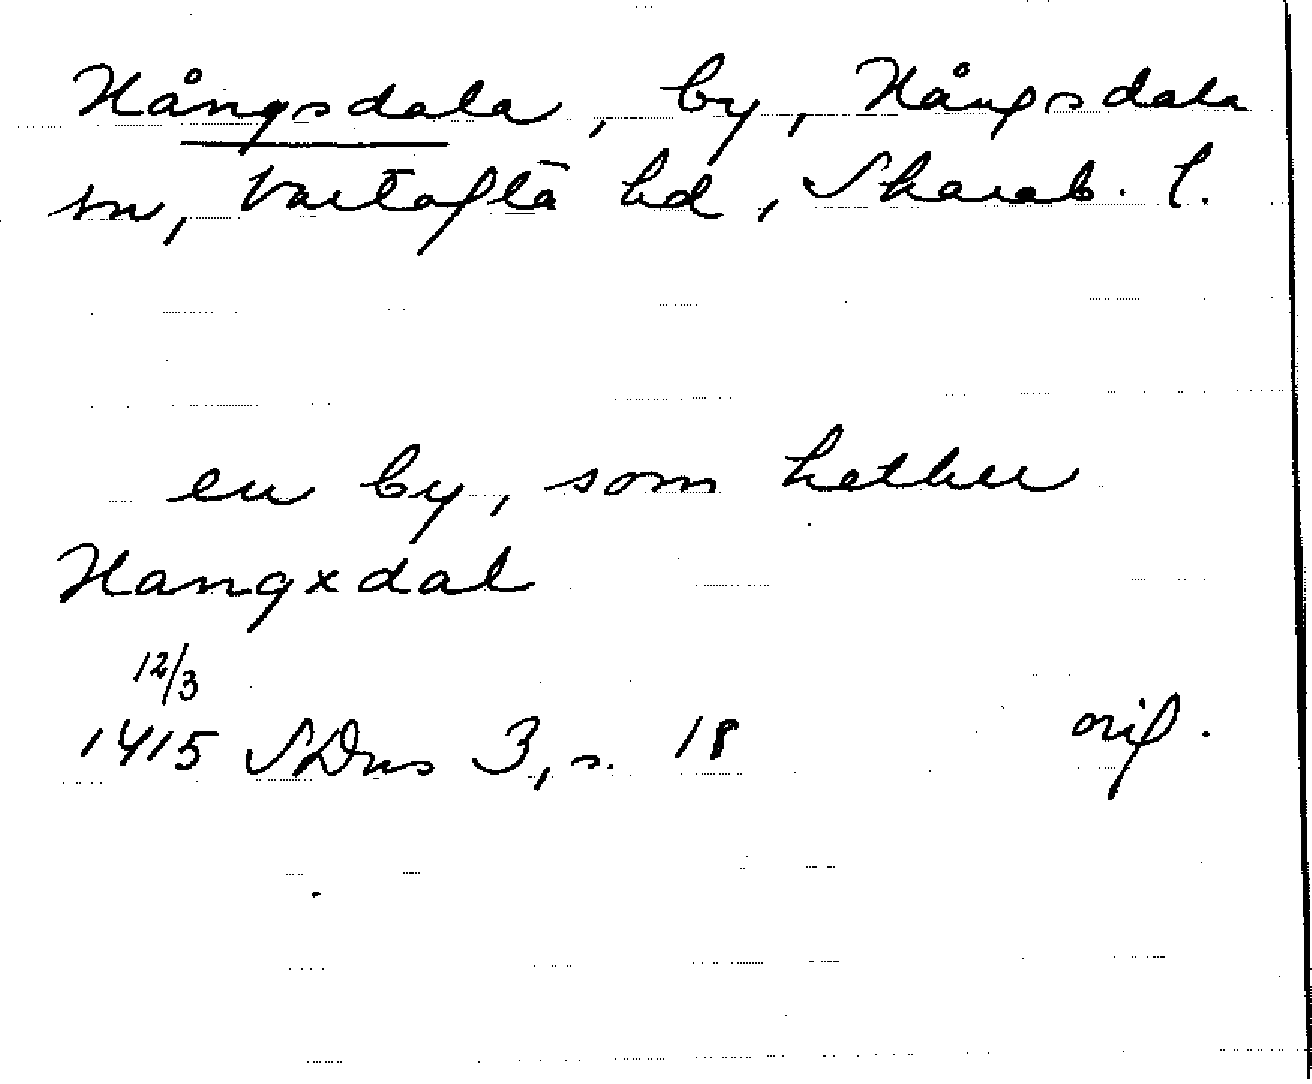 Hångsdala, by, Hångsdala
sn, Vartofta hd, Skarab. l.
en by, som hether
Hangxdal
12/3
1415 SDns 3, s. 18 orig.